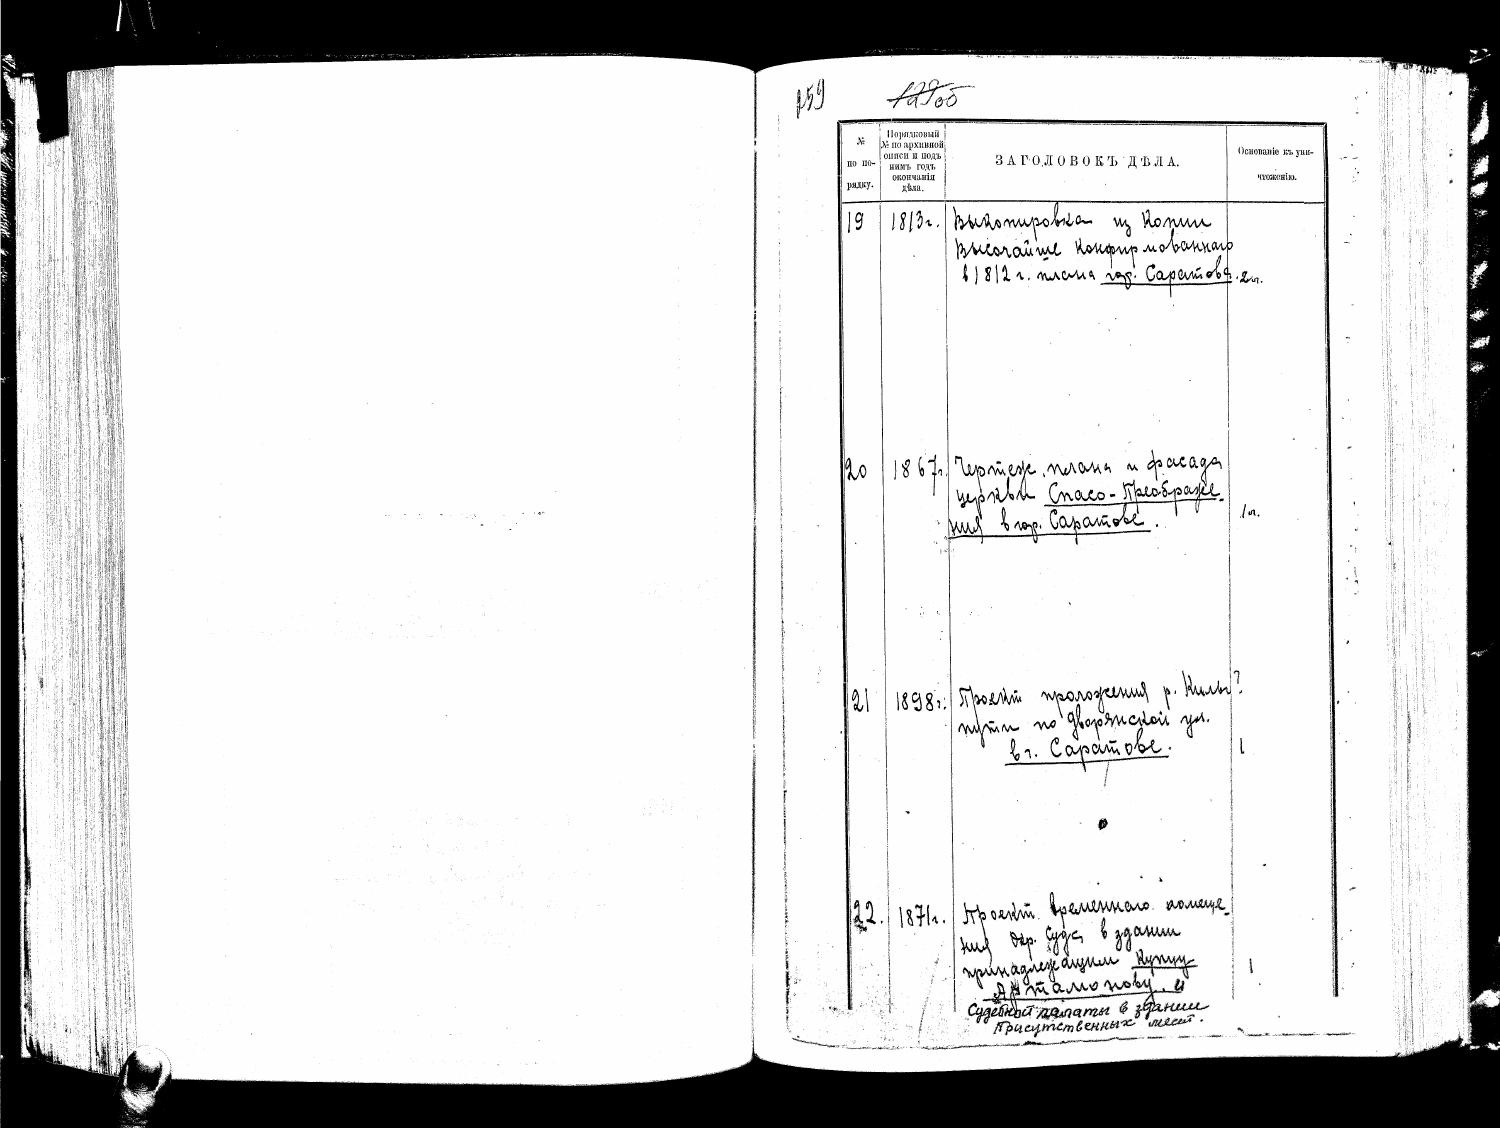 159
129об
№ по по-рядку.
Порядковый № по архивной описи и подъ нимъ годъ окончанія дѣла.
ЗАГОЛОВОКЪ ДѢЛА.
Основаніе къ уни-чтоженію.
19 1813г. Выкопировка из Копии
Высочайше конфирмованнаго
в 1812 г. плана гор. Саратова. 2л.
20 1867г. Чертеж плана и фасада
церквы Спасо-Преображе-
ния в гор. Саратове. 1л.
21 1898г. Проект проложения р. ?
пути по Дворянской ул.
в г. Саратове. 1
22. 1871г. Проект временнаго помеще-
ния Окр. Суда в здании
принадлежащим Купцу 1
Артамонову и
Судебной палаты в здании
Присутственных мест.